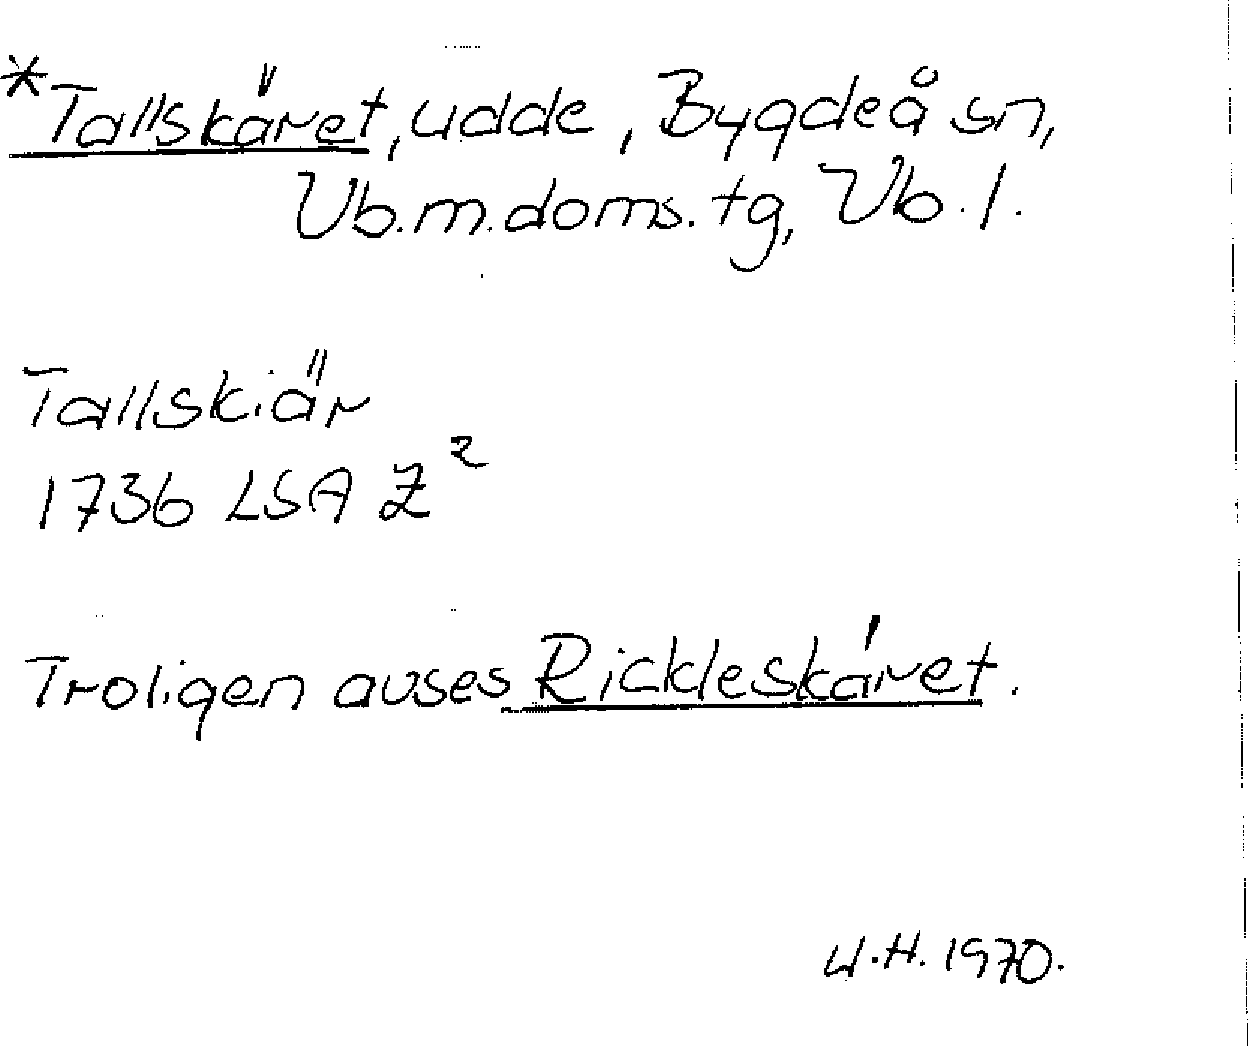 *Tallskäret, udde, Bygdeå sn,
Vb.m.doms.tg, Vb.l.
Tallskiär
1736 LSA Z²
Troligen avses Rickleskäret.
U.H. 1970.